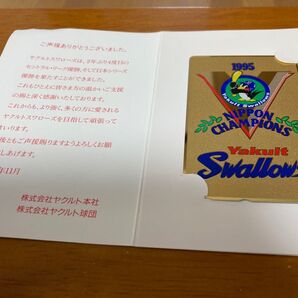 ご声援ありがとうございました。
ヤクルトスワローズは、2年ぶり4度目の
セントラル・リーグ優勝、そして日本シリーズ
優勝を果たすことができました。
これもひとえに皆さま方の温かいご支援
の賜と深く感謝いたしております。
これからも、より強く、多くの方に愛される
ヤクルトスワローズを目指して頑張って
まいります。
後ともご声援賜りますようよろしくお願
しあげます。
年11月
株式会社ヤクルト本社
株式会社ヤクルト球団
1995
Yakult Swallows
NIPPON
CHAMPIONS
Yakult
Swallows